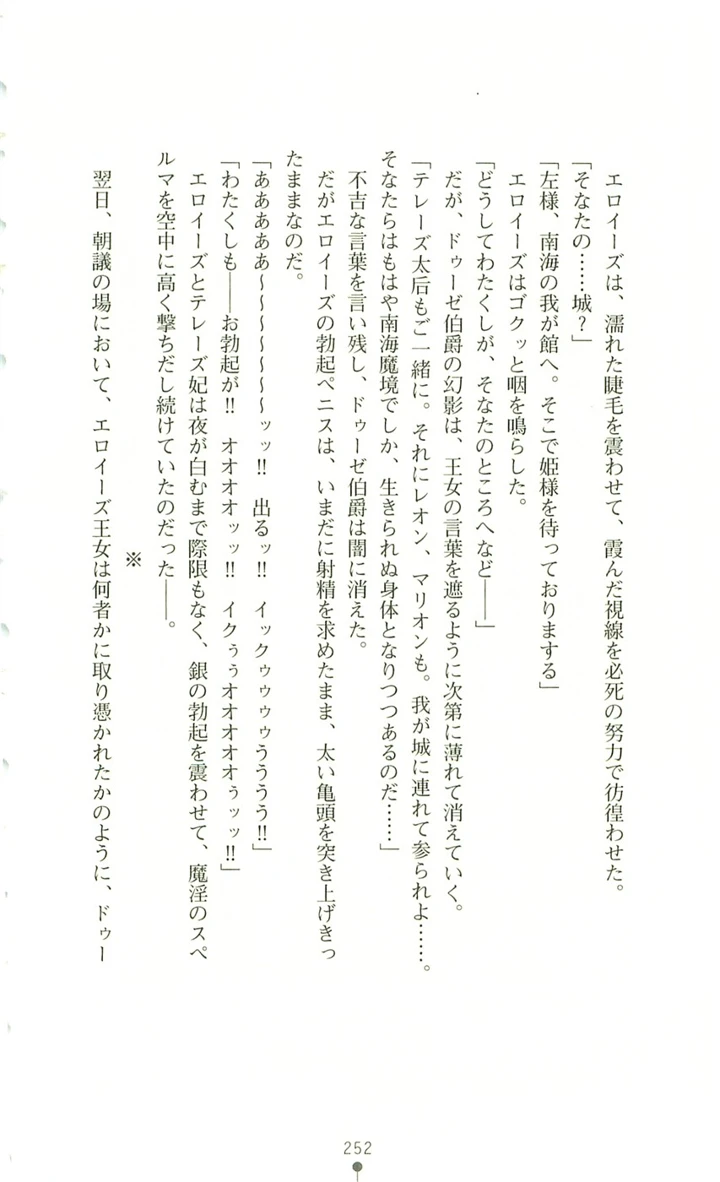 エロイーズは、濡れた睫毛を震わせて、霞んだ視線を必死の努力で彷徨わせた。
「そなたの……城？」
「左様、南海の我が館へ。そこで姫様を待っておりまする」
エロイーズはゴクッと咽を鳴らした。
「どうしてわたくしが、そなたのところへなど――」
だが、ドゥーゼ伯爵の幻影は、王女の言葉を遮るように次第に薄れて消えていく。
「テレーズ太后もご一緒に。それにレオン、マリオンも。我が城に連れて参られよ……。
そなたらはもはや南海魔境でしか、生きられぬ身体となりつつあるのだ……」
不吉な言葉を言い残し、ドゥーゼ伯爵は闇に消えた。
だがエロイーズの勃起ペニスは、いまだに射精を求めたまま、太い亀頭を突き上げきっ
たままなのだ。
「あああああ～～～～～～ッッ!!　出るッ!!　イックゥゥゥゥうううう!!」
「わたくしも――お勃起が!!　オオオオッッ!!　イクぅぅオオオオオぅッッ!!」
エロイーズとテレーズ妃は夜が白むまで際限もなく、銀の勃起を震わせて、魔淫のスペ
ルマを空中に高く撃ちだし続けていたのだった――。
※
翌日、朝議の場において、エロイーズ王女は何者かに取り憑かれたかのように、ドゥー
252